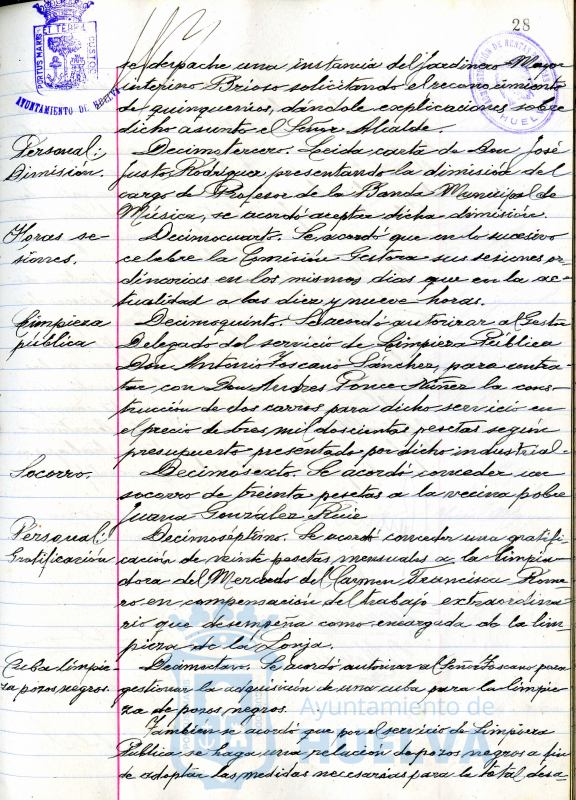 28
PORTUS MARIS ET TERRÆ CUSTOS
AYUNTAMIENTO DE HUELVA
ADMINISTRACIÓN DE RENTAS
HUEL
se despache una instancia del Jardinero Mayor
interino Brioso solicitando el reconocimiento
de quinquenios, dándole explicaciones sobre
dicho asunto el Señor Alcalde.
Personal:
Dimisión.
Decimotercero. Leida carta de Don José
Justo Rodríguez presentando la dimisión del
cargo de Profesor de la Banda Municipal de
Música, se acordó aceptar dicha dimisión.
Horas se-
siones.
Decimocuarto. Se acordó que en lo sucesivo
celebre la Comisión Gestora sus sesiones or-
dinarias en los mismos dias que en la ac-
tualidad a las diez y nueve horas.
Limpieza
pública
Decimoquinto. Se acordó autorizar al Gestor
Delegado del servicio de Limpieza Pública
Don Antonio Toscano Sánchez, para contra-
tar con Don Andres Ponce Núñez la cons-
trucción de dos carros para dicho servicio en
el precio de tres mil doscientas pesetas según
presupuesto presentado por dicho industrial.
Socorro.
Decimosexto. Se acordó conceder un
socorro de treinta pesetas a la vecina pobre
Juana González Ruiz
Personal:
Gratificación
Decimoséptimo. Se acordó conceder una gratifi-
cación de veinte pesetas mensuales a la limpia-
dora del Mercado del Carmen Francisca Rome-
ro en compensación del trabajo extraordina-
rio que desempeña como encargada de la lim-
pieza de la Lonja.
Cuba limpie-
za pozos negros.
Decimoctavo. Se acordó autorizar al Señor Toscano para
gestionar la adquisición de una cuba para la limpie-
za de pozos negros.
También se acordó que por el servicio de Limpieza
Pública se haga una relación de pozos negros a fin
de adoptar las medidas necesarias para la total desa-
Ayuntamiento de
HUELVA